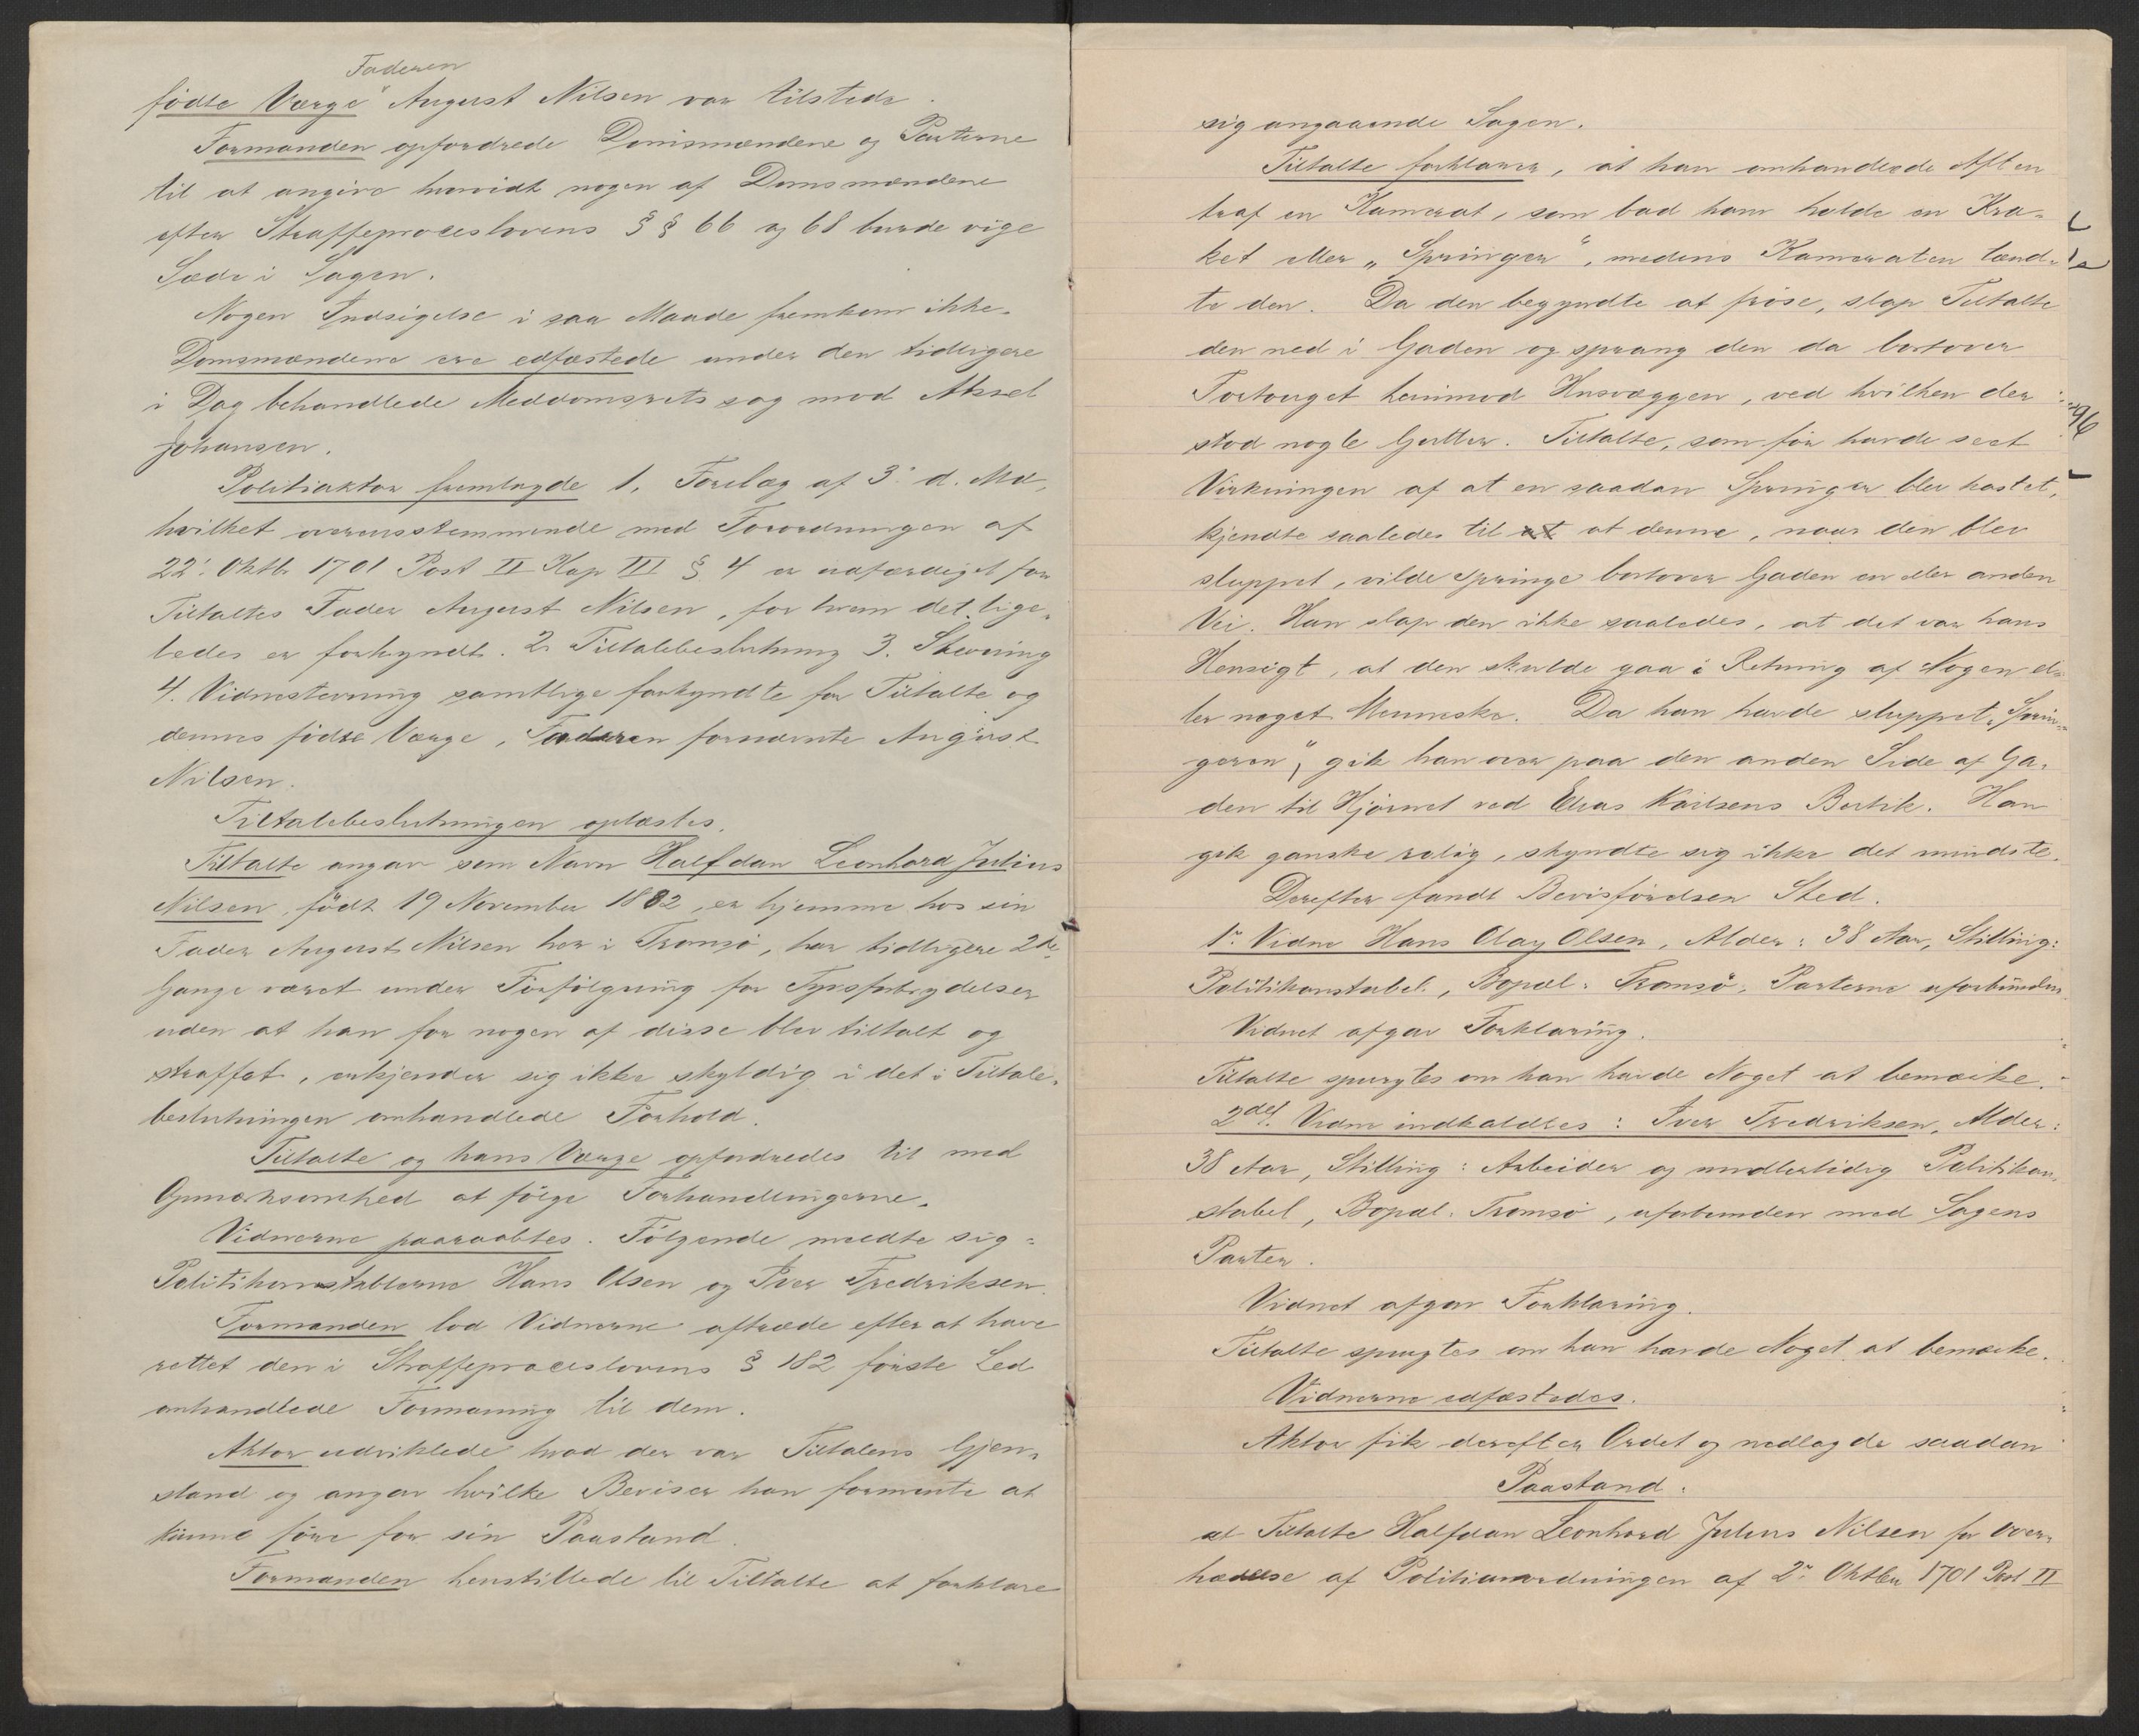 Faderen
fødte Værge August Nilsen var tilstede.
Formanden opfordrede Domsmændene og Parterne
til at angive hvorvidt nogen af Domsmændene
efter Straffeproceslovens §§ 66 og 68 burde vige
Sæde i Sagen.
Nogen Indsigelse i saa Maade fremkom ikke.
Domsmændene ere edfæstede under den tidligere
i Dag behandlede Meddomsretssag mod Aksel
Johansen.
Politiaktor fremlagde 1. Forelæg af 3. d. Md,
hvilket overensstemmende med Forordningen af
22. Oktb. 1701 Post II Kap III § 4 er udfærdiget for
Tiltaltes Fader August Nilsen, for hvem det lige-
ledes er forkyndt. 2. Tiltalebeslutning 3. Stevning
4. Vidnestevning samtlige forkyndte for Tiltalte og
dennes fødte Værge, Faderen fornævnte August
Nilsen.
Tiltalebeslutningen oplæstes.
Tiltalte angav som Navn Halfdan Leonhard Julius
Nilsen, født 19 November 1882, er hjemme hos sin
Fader August Nilsen her i Tromsø, har tidligere 2de
Gange været under Forfølgning for Tyvsforbrydelser
uden at han for nogen af disse blev tiltalt og
straffet, erkjender sig ikke skyldig i det i Tiltale-
beslutningen omhandlede Forhold.
Tiltalte og hans Værge opfordredes til med
Opmærksomhed at følge Forhandlingerne.
Vidnerne paaraabtes. Følgende meldte sig:
Politikonstablerne Hans Olsen og Iver Fredriksen.
Formanden lod Vidnerne aftræde efter at have
rettet den i Straffeproceslovens § 182 første Led
omhandlede Formaning til dem.
Aktor udviklede hvad der var Tiltalens Gjen-
stand og angav hvilke Beviser han formente at
kunne føre for sin Paastand.
Formanden henstillede til Tiltalte at forklare
sig angaaende Sagen.
Tiltalte forklarer, at han omhandlede Aften
traf en Kamerat, som bad ham holde en Kra-
ket eller „Springer“, medens Kameraten tænd-
te den. Da den begyndte at frøse, slap Tiltalte
den ned i Gaden og sprang den da bortover
Fortouget henimod Husvæggen, ved hvilken der
stod nogle Gutter. Tiltalte, som før havde seet
Virkningen af at en saadan Springer blev kastet,
kjendte saaledes til at at denne, naar den blev
sluppet, vilde springe bortover Gaden en eller anden
Vei. Han slap den ikke saaledes, at det var hans
Hensigt, at den skulde gaa i Retning af Nogen el-
ler noget Menneske. Da han havde sluppet „Sprin-
geren“, gik han over paa den anden Side af Ga-
den til Hjørnet ved Butik. Han
gik ganske rolig, skyndte sig ikke det mindste.
Derefter fandt Bevisførelsen Sted.
1. Vidne Hans Olay Olsen, Alder: 38 Aar, Stilling:
Politikonstabel, Bopæl: Tromsø, Parterne uforbunden.
Vidnet afgav Forklaring.
Tiltalte spurgtes om han havde Noget at bemærke.
2det Vidne indkaldtes: Iver Fredriksen, Alder:
38 Aar, Stilling: Arbeider og midlertidig Politikon-
stabel, Bopæl: Tromsø, uforbunden med Sagens
Parter.
Vidnet afgav Forklaring.
Tiltalte spurgtes om han havde Noget at bemærke.
Vidnerne edfæstedes.
Aktor fik derefter Ordet og nedlagde saadan
Paastand:
at Tiltalte Halfdan Leonhard Julius Nilsen for Over-
trædelse af Politianordningen af 2. Oktbr 1701 Post II